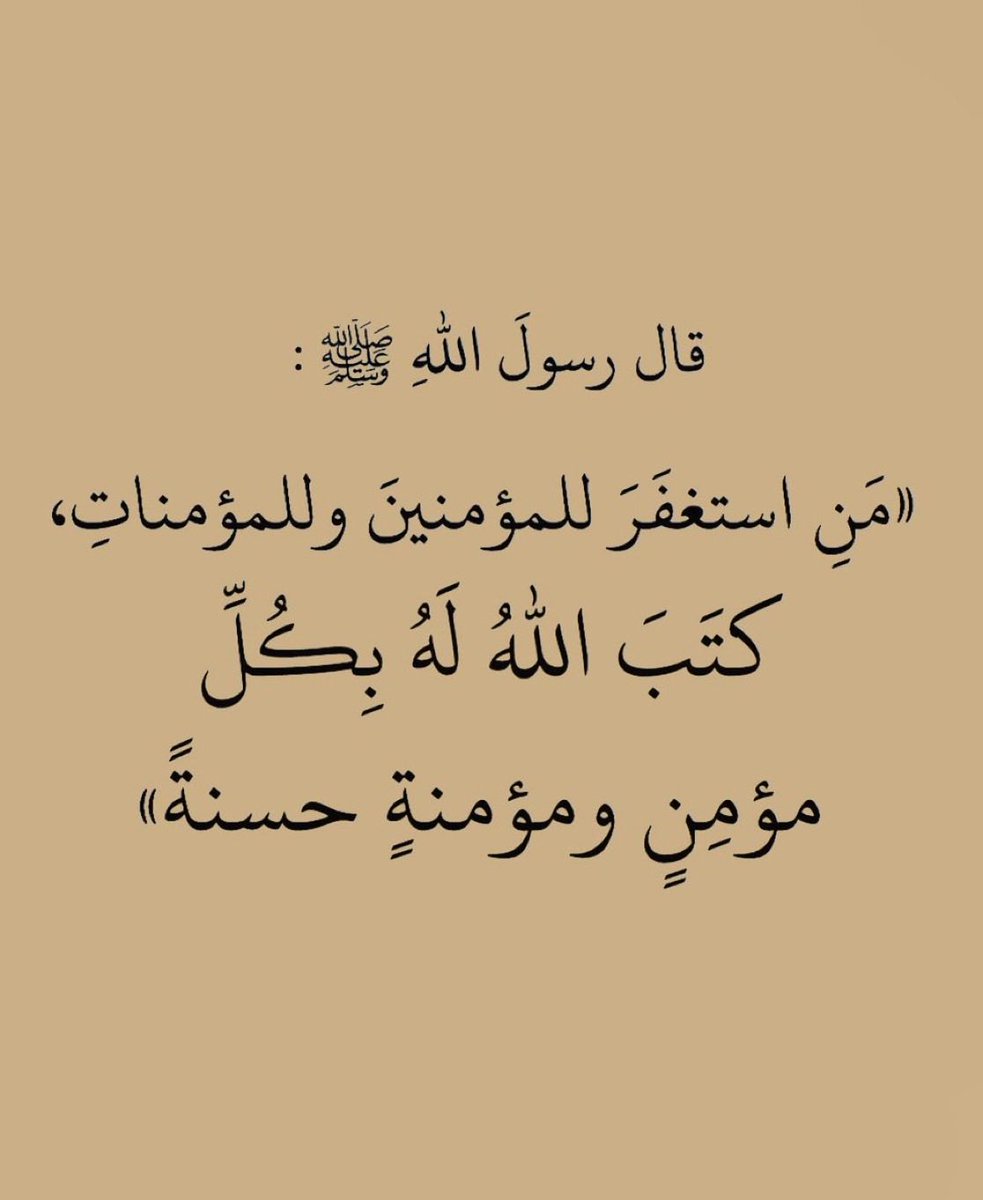 قال رسولَ اللهِ ﷺ :
«مَنِ استغفَرَ للمؤمنينَ وللمؤمناتِ،
كتَبَ اللهُ لَهُ بِكُلِّ
مؤمِنٍ ومؤمنةٍ حسنةً»